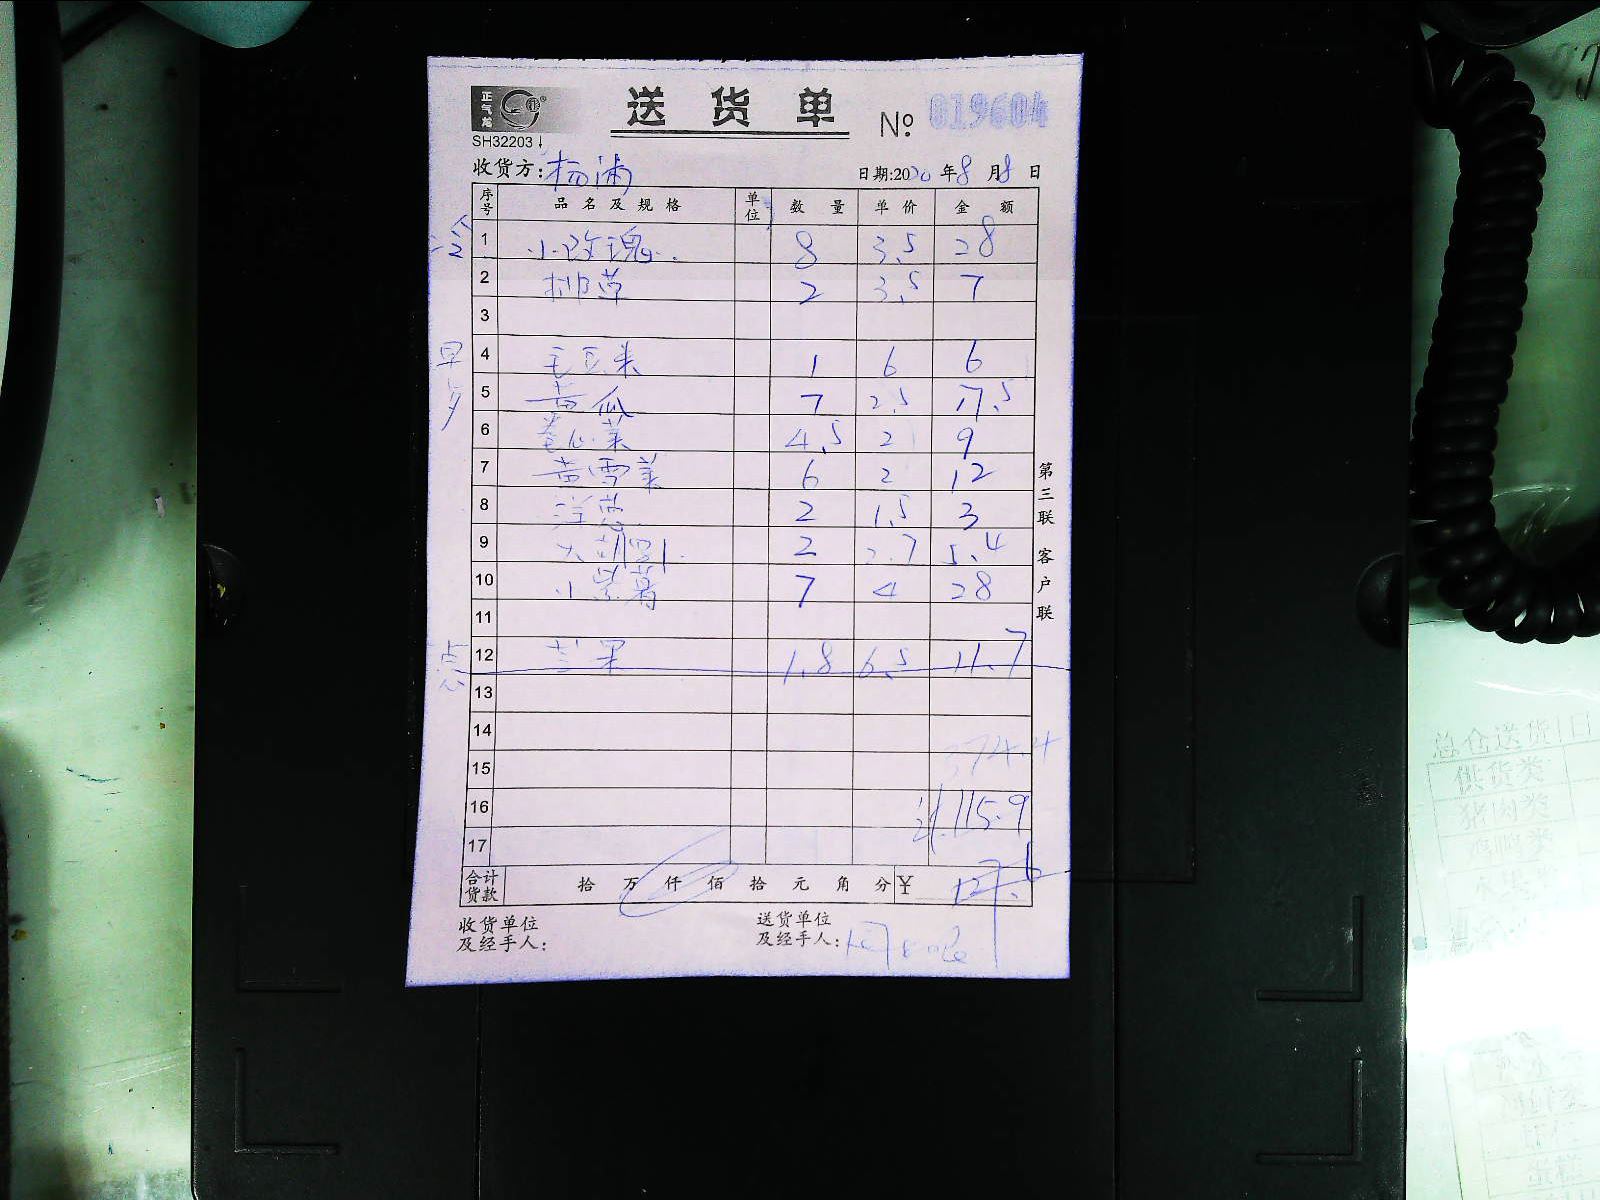 正气龙
送货单
№ 019604
SH32203
收货方:杨浦 日期:2020年8月8日
序号 品名及规格 单位 数量 单价 金额
冷
1 小玫瑰 8 3.5 28
2 柳草 2 3.5 7
3
早
4 毛豆米 1 6 6
5 黄瓜 7 2.5 17.5
6 卷心菜 4.5 2 9
7 黄雪菜 6 2 12
8 洋葱 2 1.5 3
9 2 2.7 5.4
10 小紫薯 7 4 28
11
点心
12 芒果 1.8 6.5 11.7
13
14
15 374.4
16 115.9
17
合计货款 拾 万 仟 佰 拾 元 角 分 ¥ 127.6
收货单位及经手人:
送货单位及经手人:
第三联 客户联
总仓送货1日
供货类
猪肉类